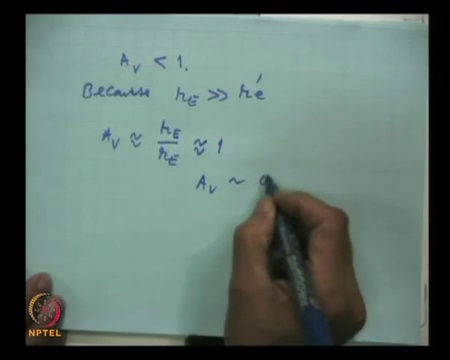 A_V < 1.
Because r_E >> r'e
A_V ≈ r_E / r_E ≈ 1
A_V ~
NPTEL